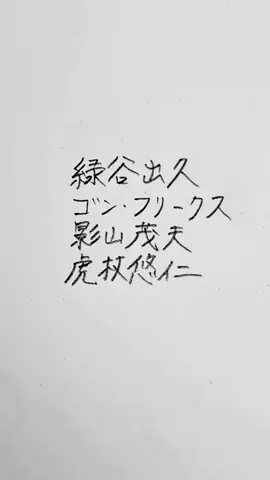 緑谷出久
ゴン・フリークス
影山茂夫
虎杖悠仁